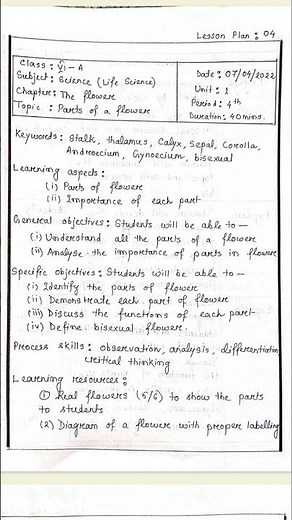 Lesson Plan : 04
Class : VI - A
Subject : Science (Life Science)
Chapter : The flower
Topic : Parts of a flower
Date : 07/04/2022
Unit : 1
Period : 4th
Duration : 40 mins.
Keywords : Stalk, thalamus, Calyx, Sepal, Corolla,
Androecium, Gynoecium, bisexual
Learning aspects :
(i) Parts of flower
(ii) Importance of each part
General objectives : Students will be able to -
(i) Understand all the parts of a flower
(ii) Analyse the importance of parts in flower
Specific objectives : Students will be able to -
(i) Identify the parts of flower
(ii) Demonstrate each part of flower
(iii) Discuss the functions of each part
(iv) Define bisexual flower.
Process skills : observation, analysis, differentiation
critical thinking
Learning resources :
(1) Real flowers (5/6) to show the parts
to students
(2) Diagram of a flower with proper labelling